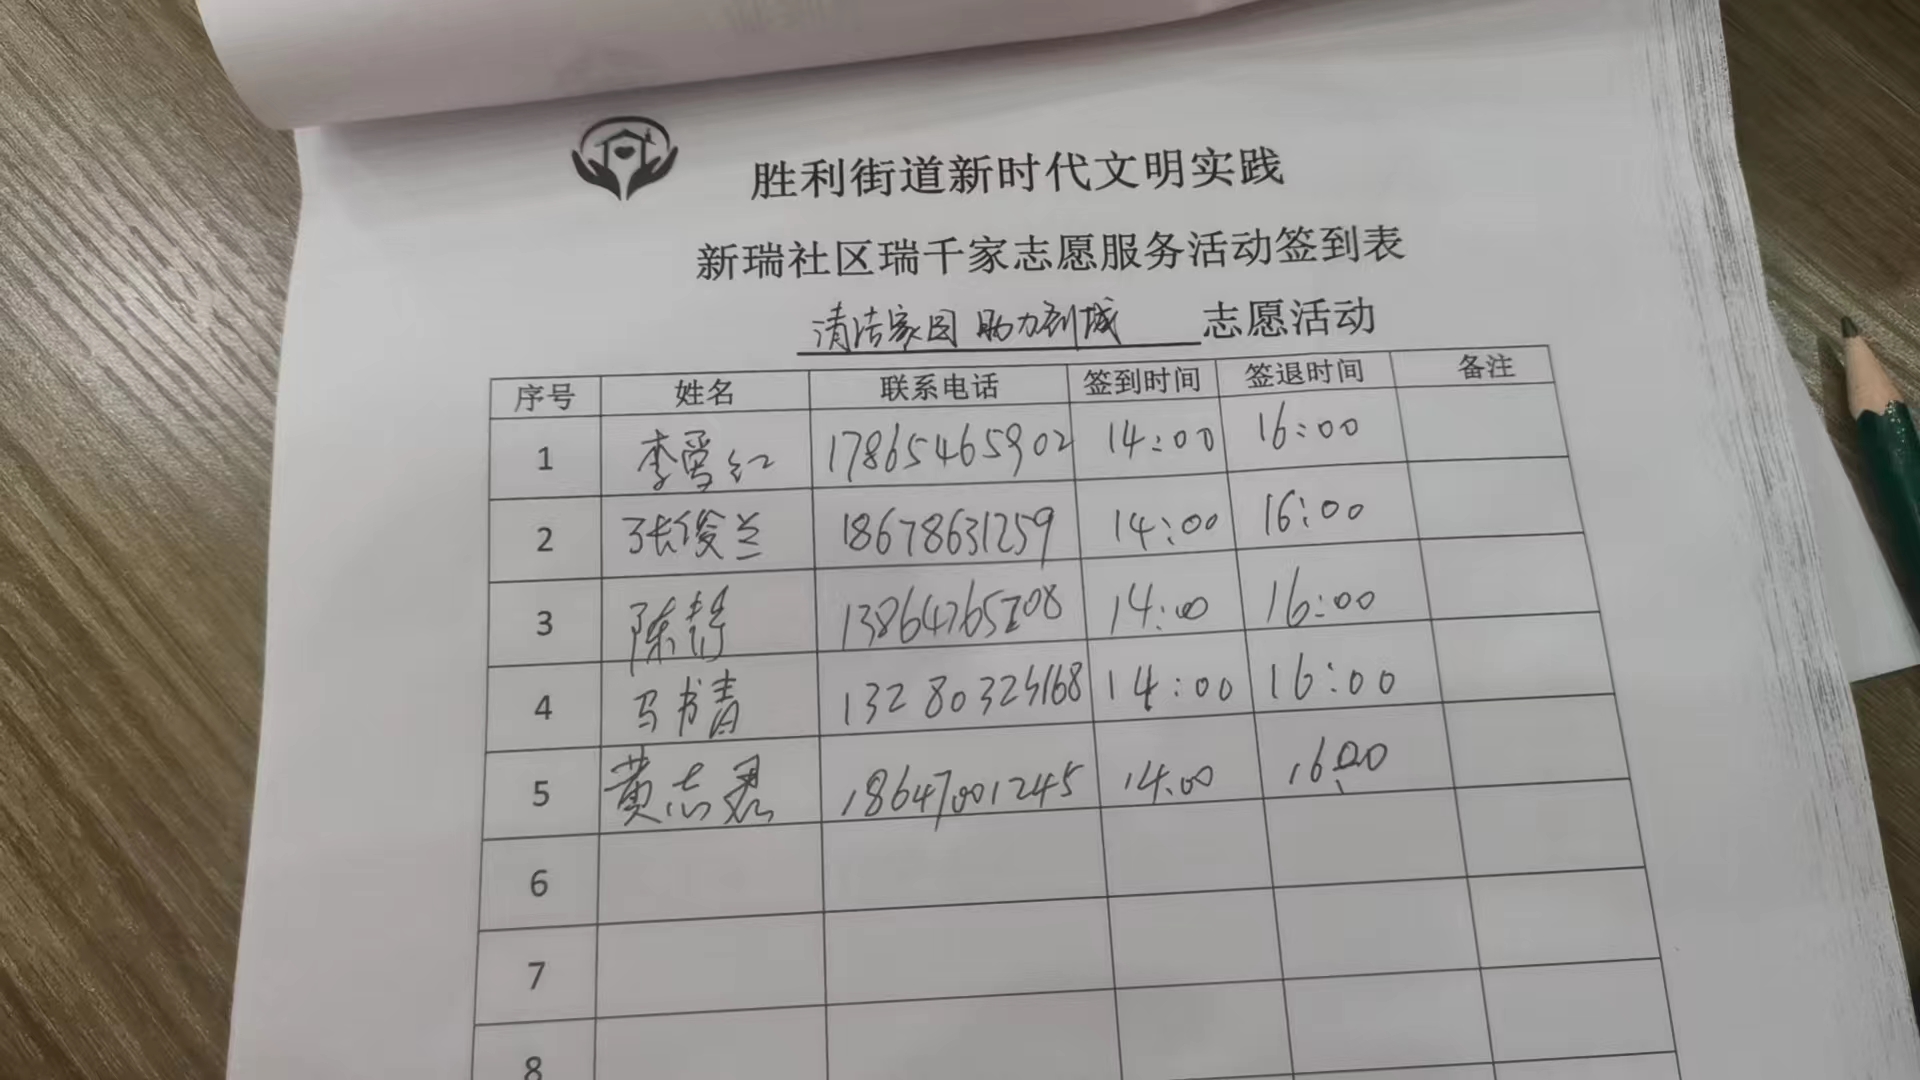 胜利街道新时代文明实践
新瑞社区瑞千家志愿服务活动签到表
清洁家园 助力创城 志愿活动
序号 姓名 联系电话 签到时间 签退时间 备注
1 李爱红 17865465902 14:00 16:00
2 张俊兰 18678631259 14:00 16:00
3 陈静 13864765208 14:00 16:00
4 马书青 13280325168 14:00 16:00
5 黄志君 18647001245 14:00 16:00
6
7
8